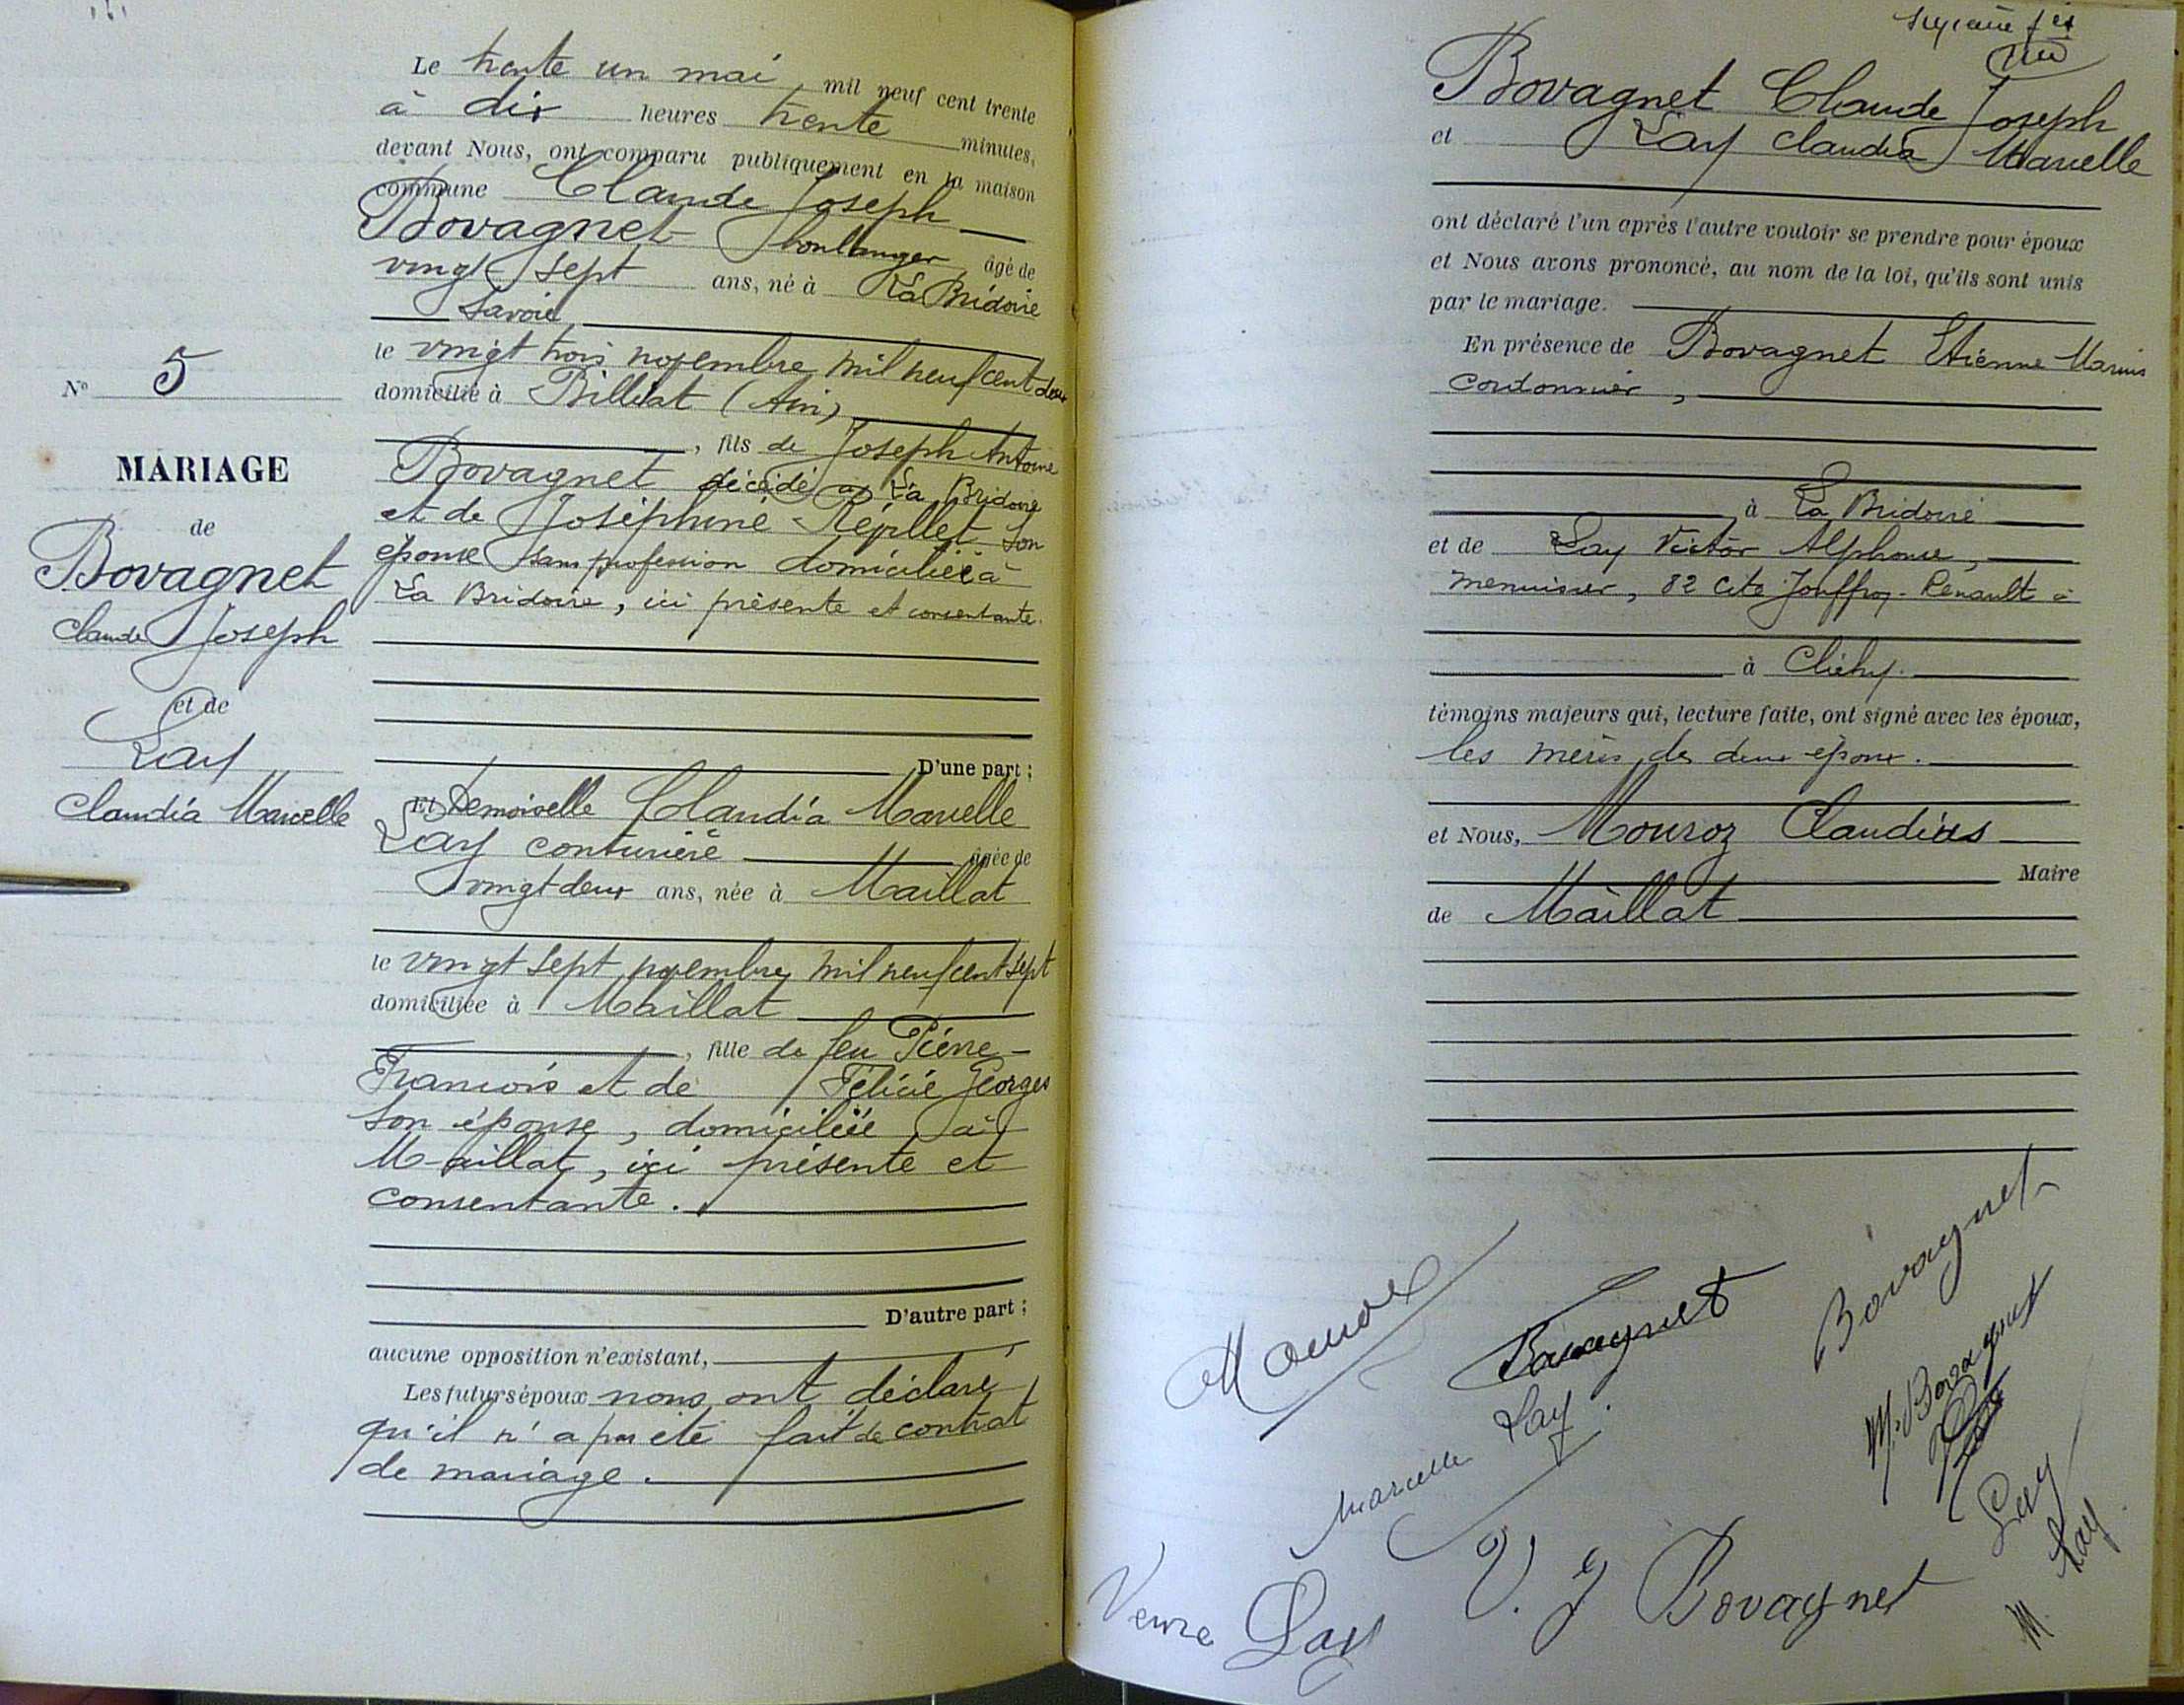 Le trente un mai mil neuf cent trente
à dix heures trente minutes,
devant Nous, ont comparu publiquement en la maison
commune Claude Joseph
Bovagnet boulanger âgé de
vingt sept ans, né à La Bridoire
Savoie
le vingt trois novembre mil neuf cent deux
domicilié à Billiat (Ain)
, fils de Joseph Antoine
Bovagnet décédé à La Bridoire
et de Joséphine Répllet son
épouse sans profession domiciliée à
La Bridoire, ici présente et consentante.
D'une part ;
N° 5
MARIAGE
de
Bovagnet
Claude Joseph
et de
Lay
Claudia Marcelle
Et Demoiselle Claudia Marcelle
Lay couturière âgée de
vingt deux ans, née à Maillat
le vingt sept novembre mil neuf cent sept
domiciliée à Maillat
, fille de feu Pierre
François et de Félicie Georges
son épouse, domiciliée à
Maillat, ici présente et
consentante.
D'autre part ;
aucune opposition n'existant,
Les futurs époux nous ont déclaré
qu'il n'a pas été fait de contrat
de mariage.
Bovagnet Claude Joseph
et Lay Claudia Marcelle
ont déclaré l'un après l'autre vouloir se prendre pour époux
et Nous avons prononcé, au nom de la loi, qu'ils sont unis
par le mariage.
En présence de Bovagnet Etienne Marius
cordonnier,
à La Bridoire
et de Lay Victor Alphonse,
menuisier, 82 cité Jouffroy-Renault à
à Clichy.
témoins majeurs qui, lecture faite, ont signé avec les époux,
les mères des deux époux.
et Nous, Mouroz Claudius
Maire
de Maillat
Bovagnet
Bovagnet
M. Bovagnet
Marcelle Lay
Lay
M. Lay
V. J Bovagnet
Veuve Lay